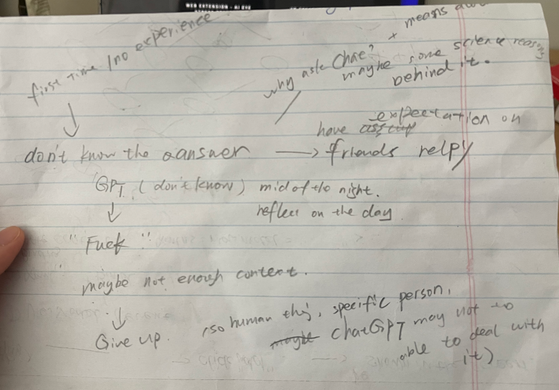 WEB EXTENSION - AI EVE
first time / no experience
why ask Chat? x means
maybe some science reason
behind it.
have expectation on
don't know the aanswer → friends relpy
GPT (don't know) mid of the night.
reflect on the day
"Fuck"
maybe not enough context.
Give up. (so human thing, specific person,
maybe chatGPT may not
able to deal with
it)